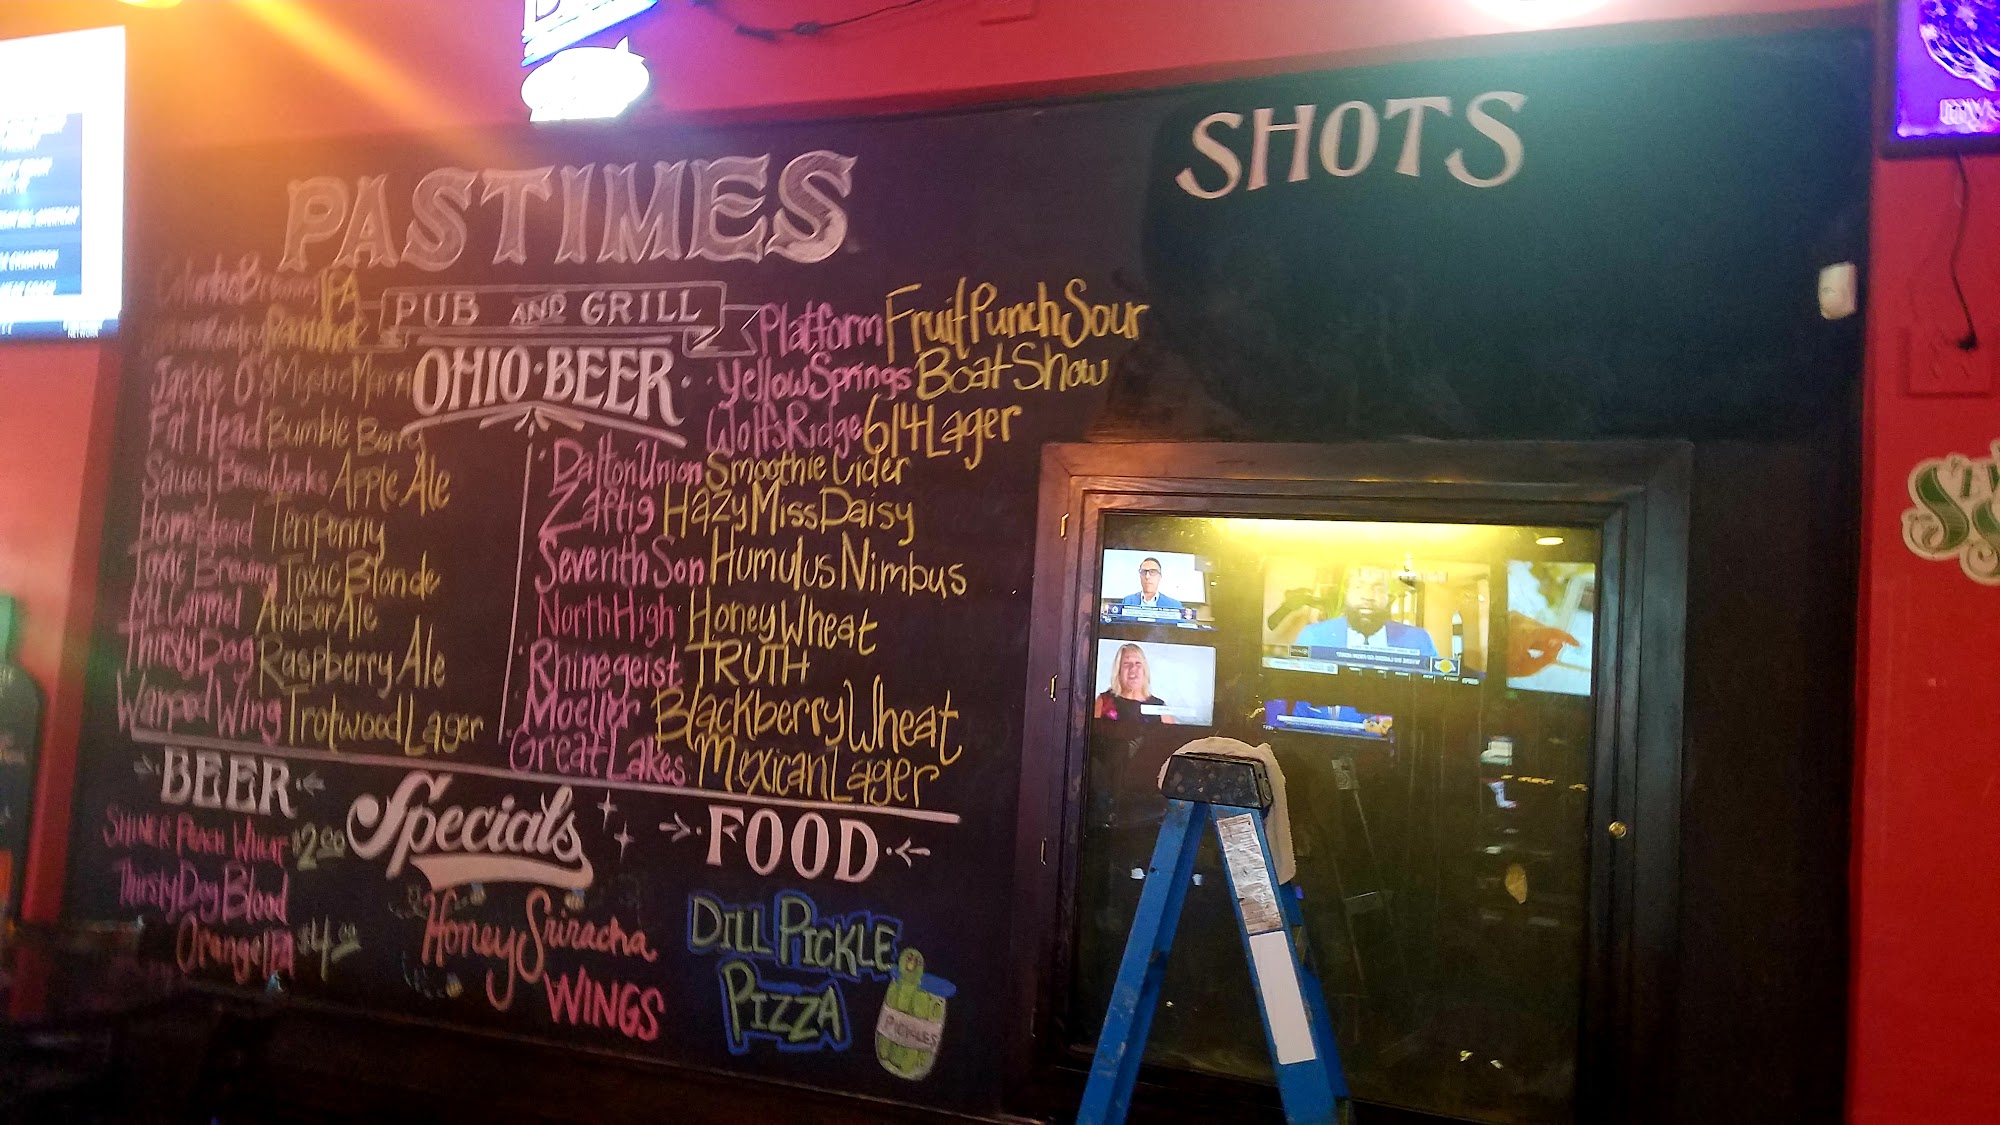 PASTIMES
PUB AND GRILL
OHIO·BEER
Columbus Brewing IPA
Jackie O's Mystic Mama
Fat Head Bumble Berry
Saucy BrewWorks Apple Ale
Homestead Tenpenny
Toxic Brewing Toxic Blonde
Mt. Carmel Amber Ale
Thirsty Dog Raspberry Ale
Warped Wing Trotwood Lager
Platform Fruit Punch Sour
Yellow Springs Boat Show
Wolfs Ridge 614 Lager
Dalton Union Smoothie Cider
Zaftig Hazy Miss Daisy
Seventh Son Humulus Nimbus
North High Honey Wheat
Rhinegeist TRUTH
Moeller Blackberry Wheat
Great Lakes Mexican Lager
BEER
Specials
FOOD
SHINER PEACH WHEAT $2.00
Thirsty Dog Blood
Orange IPA $4.00
Honey Sriracha
WINGS
DILL PICKLE
PIZZA
PICKLES
SHOTS